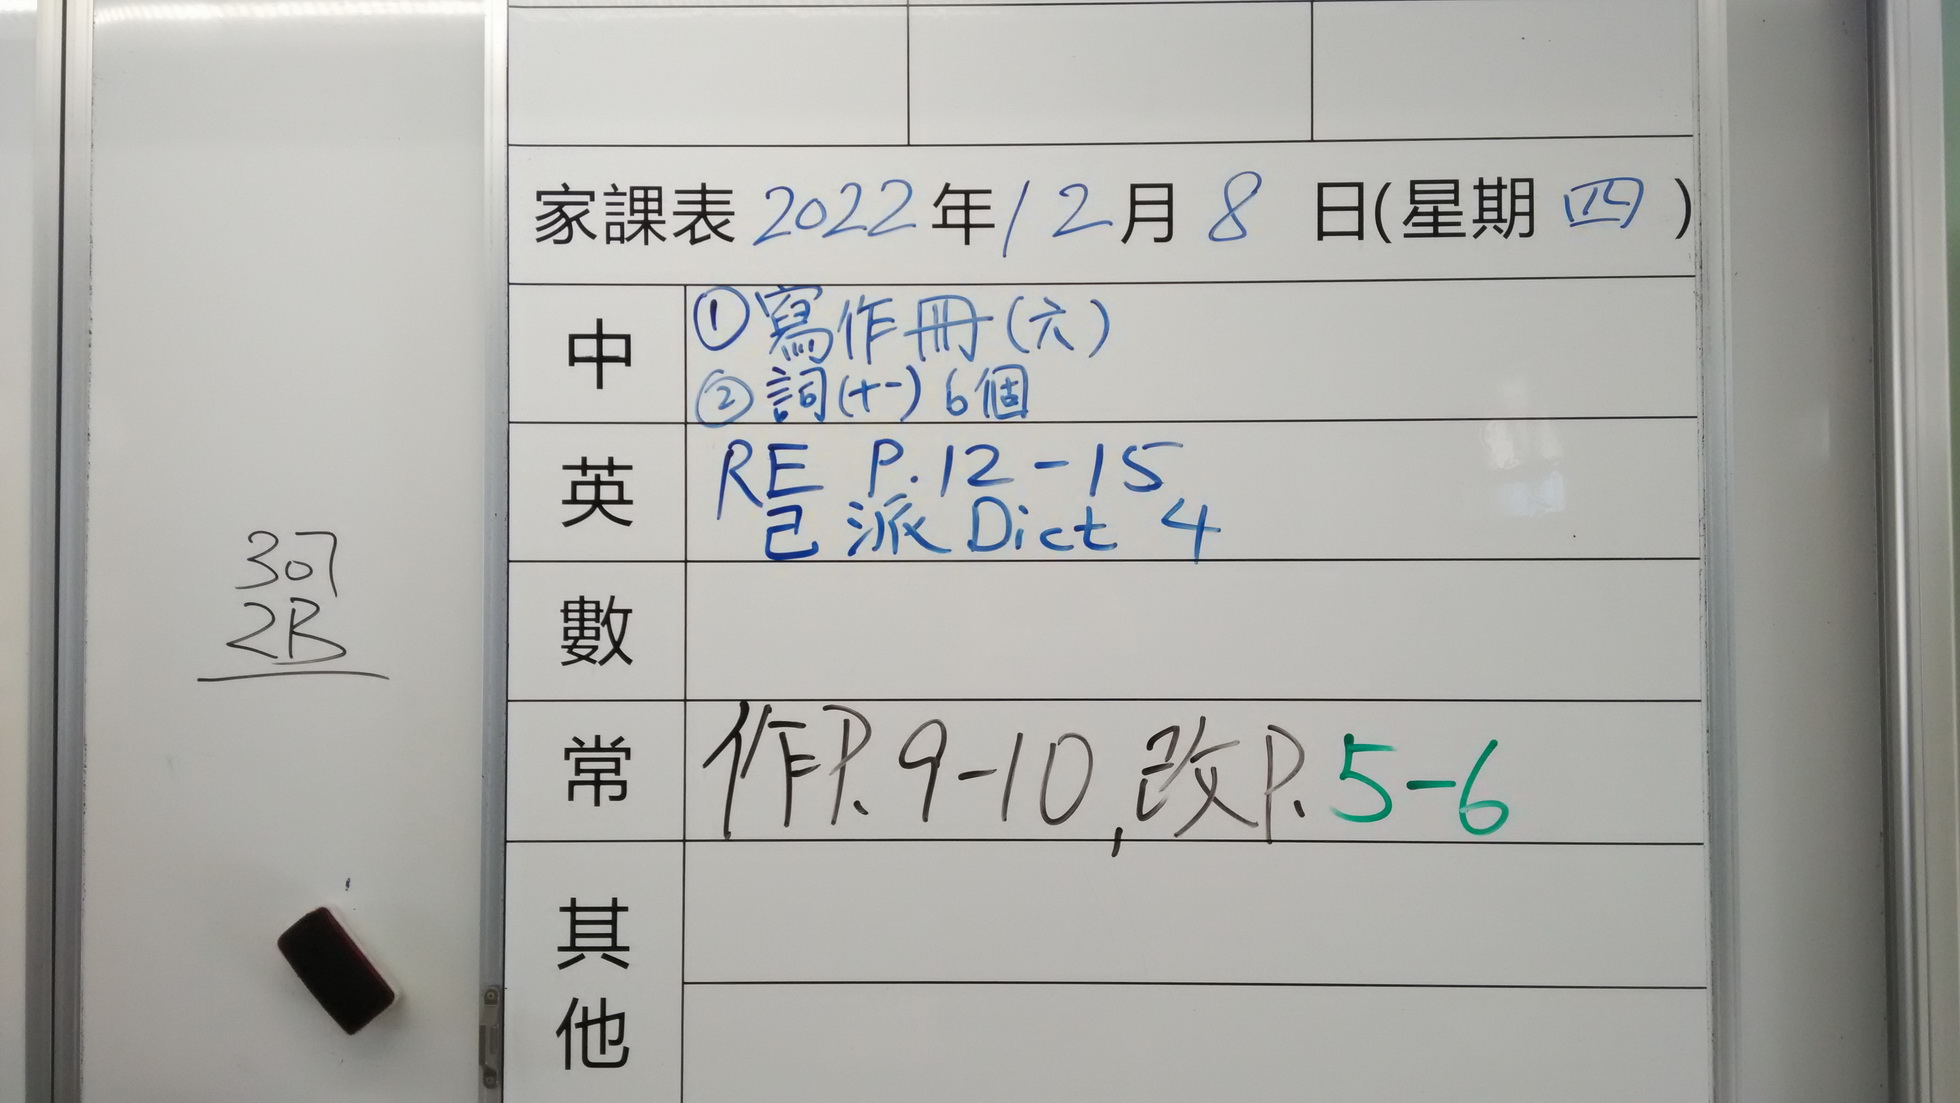 家課表 2022年12月8日(星期四)
中
①寫作冊(六)
②詞(十一)6個
英
RE P.12-15
已派Dict 4
數
常
作P.9-10,改P.5-6
其他
307
2B